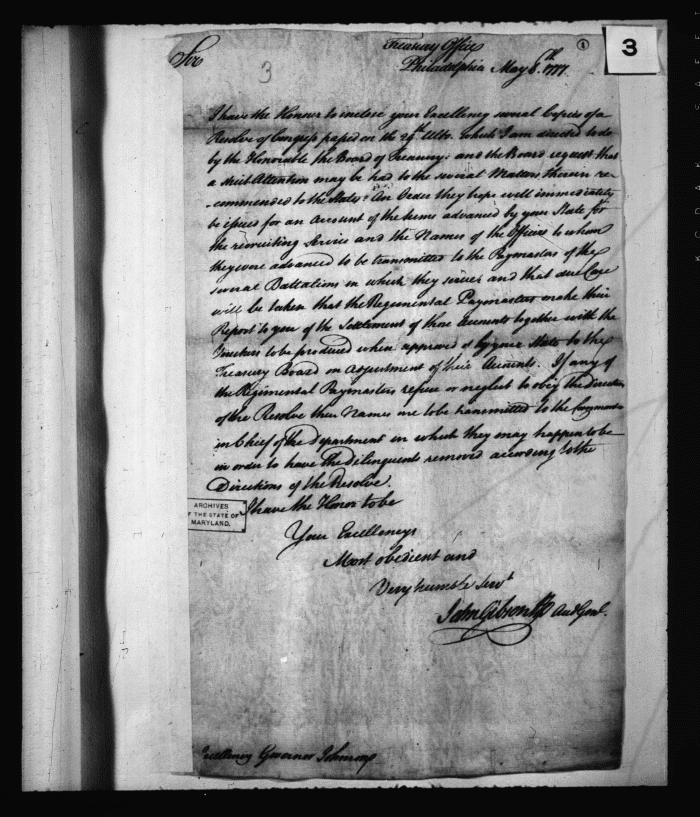 3
Treasury Office
Philadelphia May 8.th 1777
Sir
3
I have the Honour to inclose your Excellency several Copies of a
Resolve of Congress passed on the 29th Ulto. which I am directed to do
by the Honorable the Board of Treasury; and the Board request that
a strict Attention may be had to the several Matters therein re-
-commended to the State. An Order they hope will immediately
be issued for an Account of the Sums advanced by your State for
the recruiting Service and the Names of the Officers to whom
they were advanced to be transmitted to the Paymasters of the
several Battalions in which they serve; and that due Care
will be taken that the Regimental Paymasters make their
Report to you of the Settlement of those Accounts together with the
Vouchers to be produced when approved of by your State to the
Treasury Board on Adjustment of their Accounts. If any of
the Regimental Paymasters refuse or neglect to obey the Direction
of the Resolve their Names are to be transmitted to the
in Chief of the Department in which they may happen to be
in order to have the Delinquent removed according to the
Directions of the Resolve.
I have the Honor to be
Your Excellencys
Most obedient and
Very humble Servt
John Gibson Aud Genl.
ARCHIVES
OF THE STATE OF
MARYLAND.
Excellency Governor Johnson